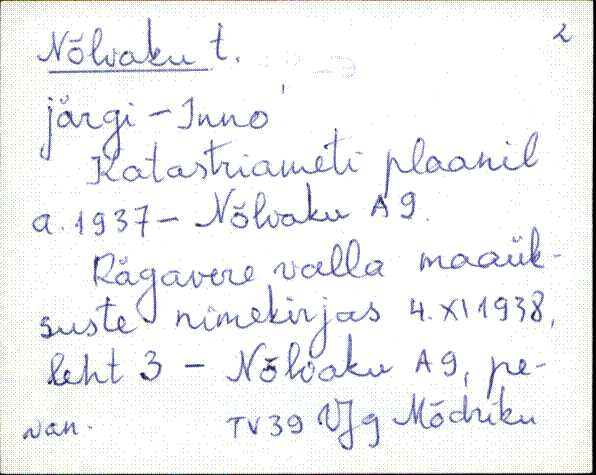 2
Nõlvaku t.
järgi - Inno'
Katastriameti plaanil
a. 1937 - Nõlvaku A 9.
Rägavere valla maaük-
suste nimekirjas 4. XI 1938,
leht 3 - Nõlvaku A 9, pe-
TV 39 VJg Mõdriku